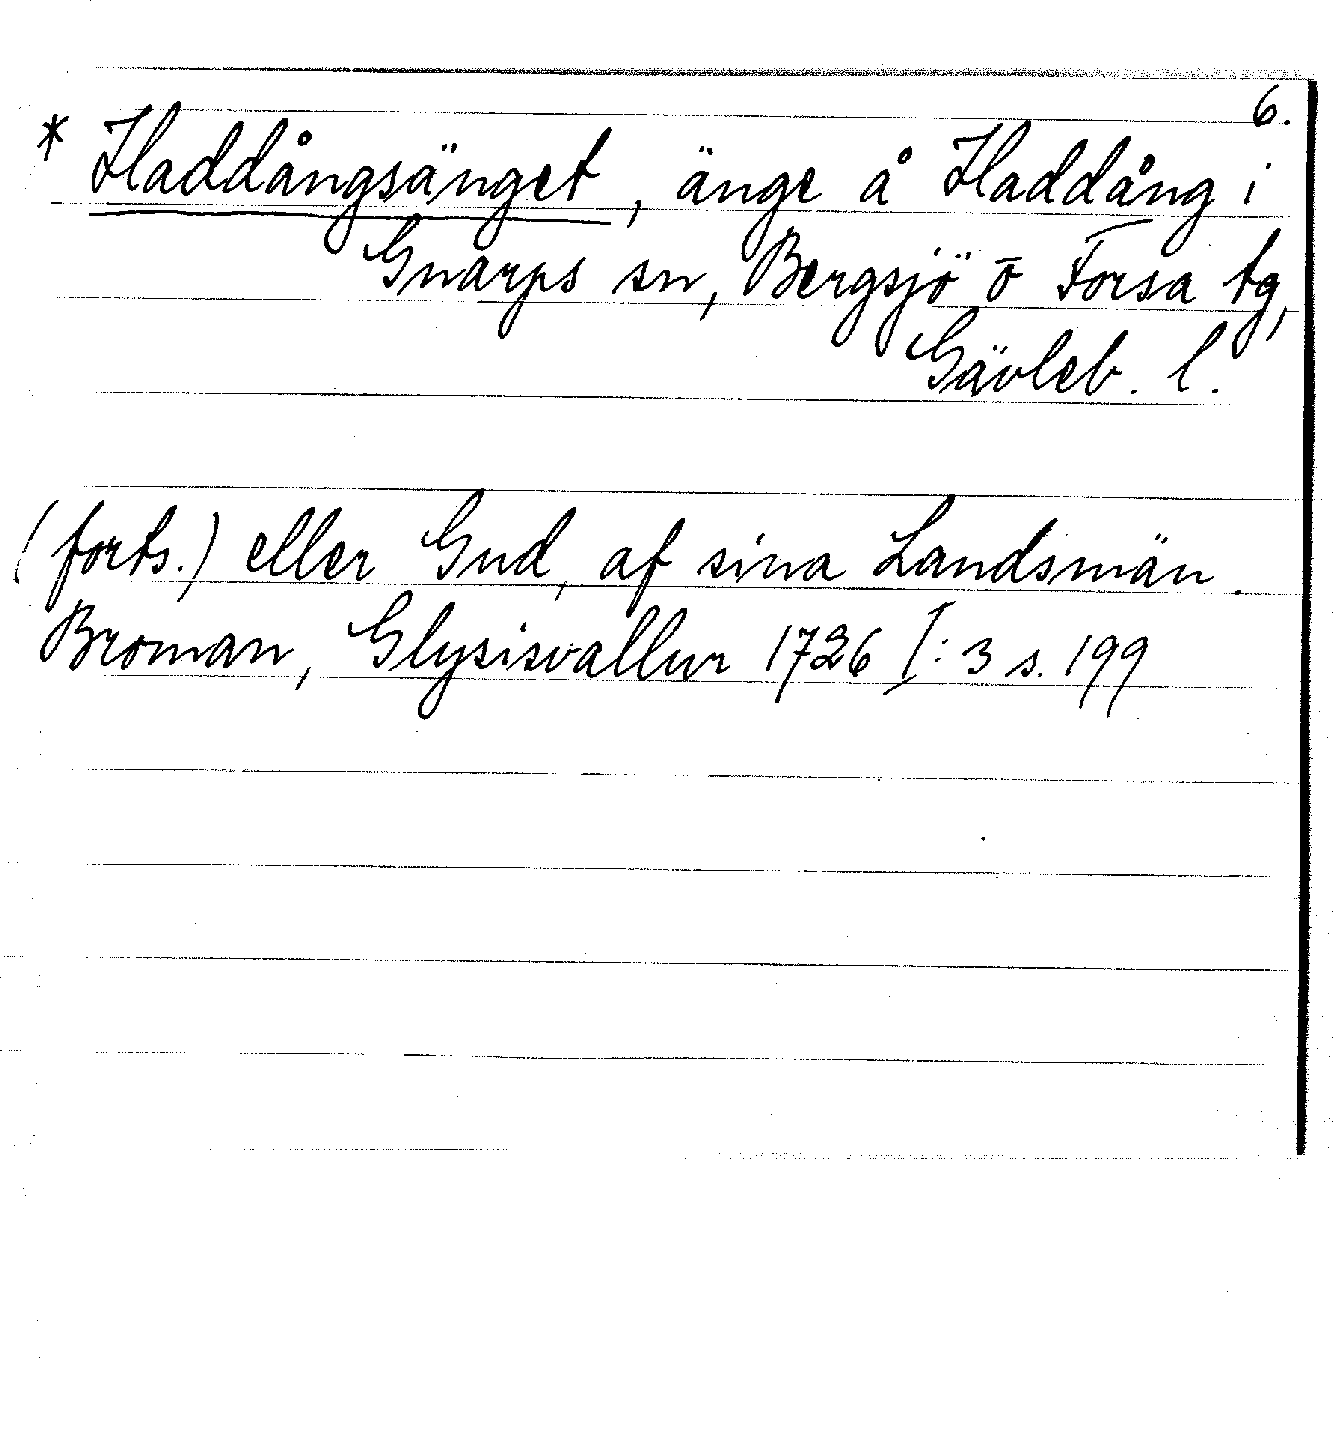 6.
* Haddångsänget, änge å Haddång i
Gnarps sn, Bergsjö o Forsa tg,
Gävleb. l.
(forts.) eller Gud, af sina Landsmän.
Broman, Glysisvallur 1726 I:3 s. 199